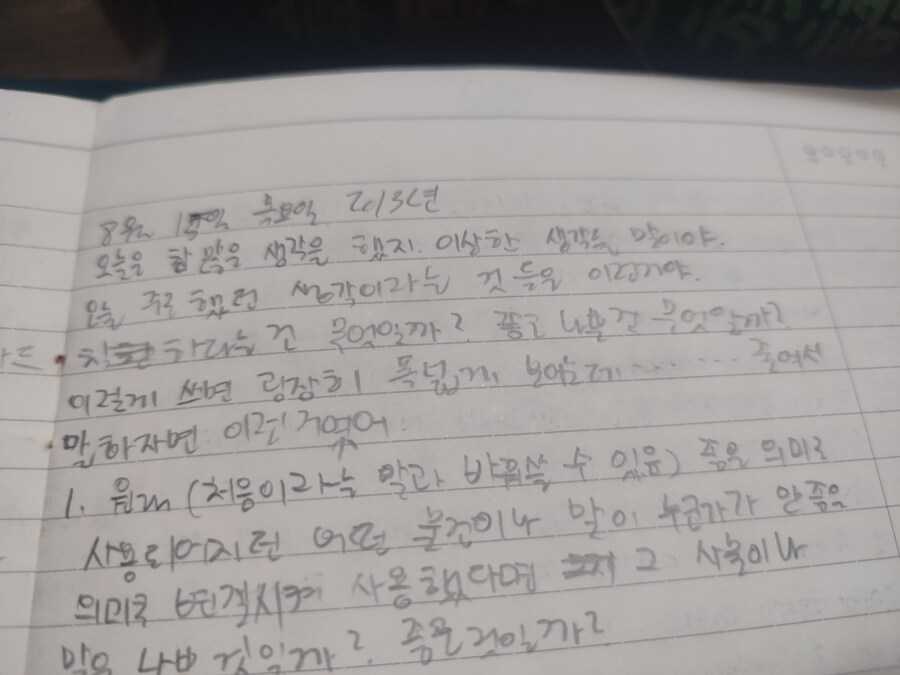 8월 15일 목요일 2013년
오늘은 참 많은 생각을 했지. 이상한 생각들 말이야.
오늘 주로 했던 생각이라는 것들은 이런거야.
착하다는 건 무엇일까? 좋고 나쁜 건 무엇일까?
이렇게 쓰면 굉장히 폭넓게 보일텐데 ...... 줄여서
말하자면 이런거였어.
1. 원래 (처음이라는 말과 바꿔쓸 수 있음) 좋은 의미로
사용되어지던 어떤 물건이나 말이 누군가가 안좋은
의미로 변격시켜 사용했다며 그 사물이나
말은 나쁜 것일까? 좋은것일까?